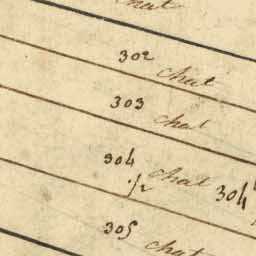 chat
302 chat
303 chat
304 chat 304
1/2
305 chat